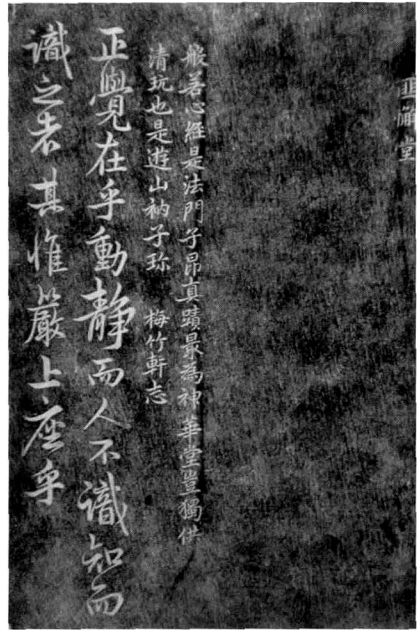 般若心經是法門子昂真蹟最為神華堂豈獨供
清玩也是遊山衲子珎　梅竹軒志
正覺在乎動静而人不識知而
識之者其惟嚴上座乎